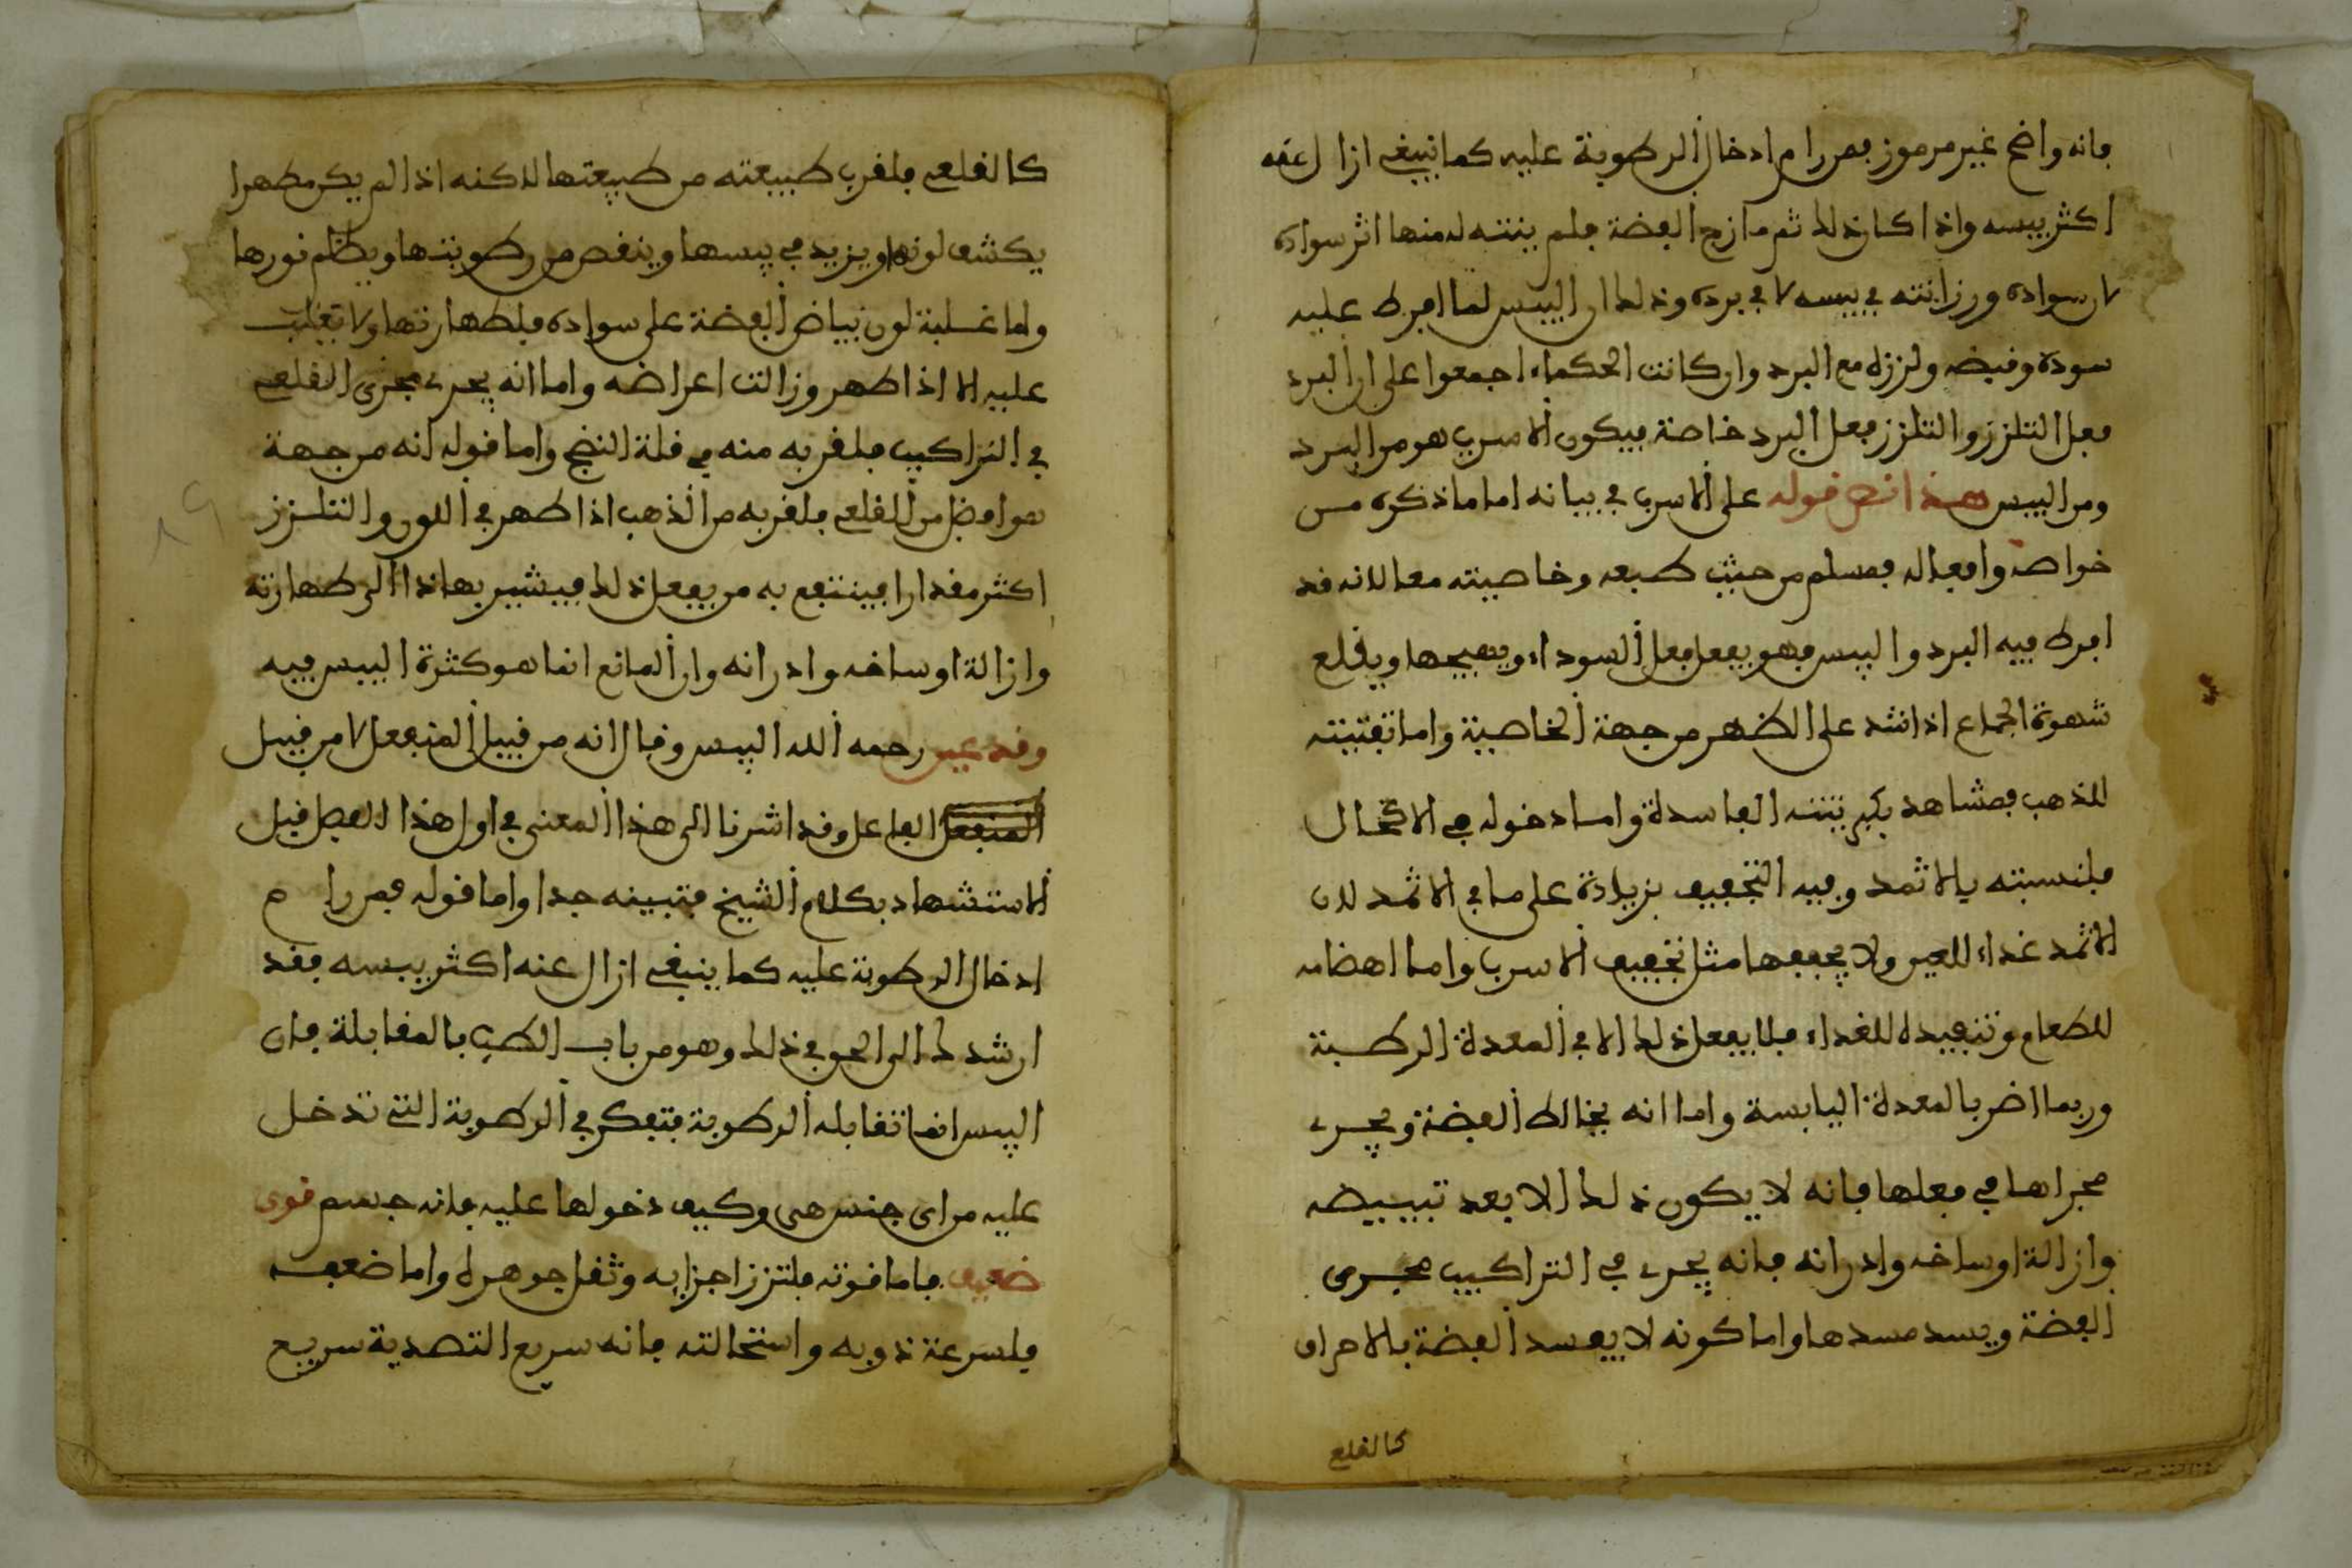 فانه واضح غير مرموز فمن رام ادخال الرطوبة عليه كما ينبغي ازال عنه
اكثر يبسه واذا كان ذلك ثم مازج الفضة فلم يتنته له منها اثر سواده
لان سواده ورزانته في يبسه لا في برده وذلك ان اليبس لما افرط عليه
سوده وقبضه ولززه مع البرد وان كانت الحكماء اجمعوا على ان البرد
فعل التلزز والتلزز فعل البرد خاصة فيكون الاسرب هو من البرد
ومن اليبس هذا نص قوله على الاسرب في بيانه اما ما ذكره من
خواصه وافعاله فمسلم من حيث طبعه وخاصيته معا لانه قد
افرط فيه البرد واليبس فهو يفعل فعل السوداء ويهيجها ويقلع
شهوة الجماع اذا شد على الظهر من جهة الخاصية واما تفتيته
للذهب فمشاهد بكبريتته الفاسدة واما دخوله في الاكحال
فلنسبته بالاثمد وفيه التجفيف بزيادة على ما في الاثمد لان
الاثمد غذاء للعين ولا يجففها مثل تجفيف الاسرب واما اهضامه
للطعام وتنفيده للغذاء فلا يفعل ذلك الا في المعدة الرطبة
وربما اضر بالمعدة اليابسة واما انه يخالط الفضة ويجرى
مجراها في فعلها فانه لا يكون ذلك الا بعد تبييضه
وازالة اوساخه وادرانه فانه يجرى في التراكيب مجرى
الفضة ويسد مسدها واما كونه لا يفسد الفضة بالاحراق
كالقلع
كالقلعي فلقرب طبيعته من طبيعتها لاكنه اذا لم يكن مطهرا
يكشف لونها ويزيد في يبسها وينقص من رطوبتها ويظلم نورها
واما غلبة لون بياض الفضة على سواده فلطهارتها ولا تغلب
عليه الا اذا طهر وزالت اعراضه واما انه يجرى مجرى القلعي
في التراكيب فلقربه منه في قلة النضج واما قوله انه من جهة
هو افضل من القلعي فلقربه من الذهب اذا طهر في اللون والتلزز
اكثر مقدارا فينتفع به من يفعل ذلك فيشير بهاذا الى طهارته
وازالة اوساخه وادرانه وان المانع انما هو كثرة اليبس فيه
وقد عين رحمه الله اليبس وقال انه من قبيل المنفعل لا من قبيل
المنفعل الفاعل وقد اشرنا الى هذا المعنى في اول هذا الفصل قبل
الاستشهاد بكلام الشيخ فتبينه جدا واما قوله فمن رام
ادخال الرطوبة عليه كما ينبغي ازال عنه اكثر يبسه فقد
ارشدك الى الحق في ذلك وهو من باب الطب بالمقابلة فان
اليبس انما تقابله الرطوبة فتفكر في الرطوبة التي تدخل
عليه من اى جنس هى وكيف دخولها عليه فانه جسم قوى
ضعيف فاما قوته فلتزز اجزايه وثقل جوهره واما ضعفه
فلسرعة ذوبه واستحالته فانه سريع التصدية سريع